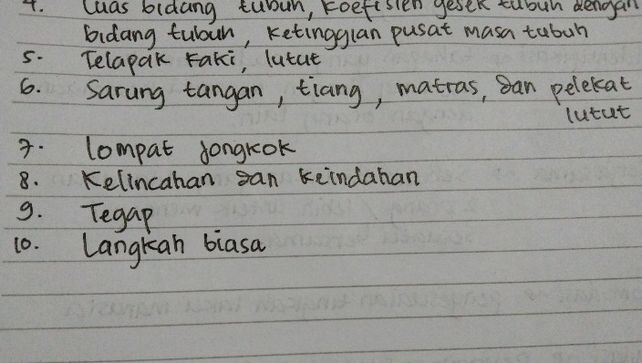 4. Luas bidang tubuh, Koefisien gesek tubuh dengan
bidang tubuh, ketinggian pusat masa tubuh
5. Telapak kaki, lutut
6. Sarung tangan, tiang, matras, dan pelekat
lutut
7. lompat jongkok
8. Kelincahan dan keindahan
9. Tegap
10. Langkah biasa